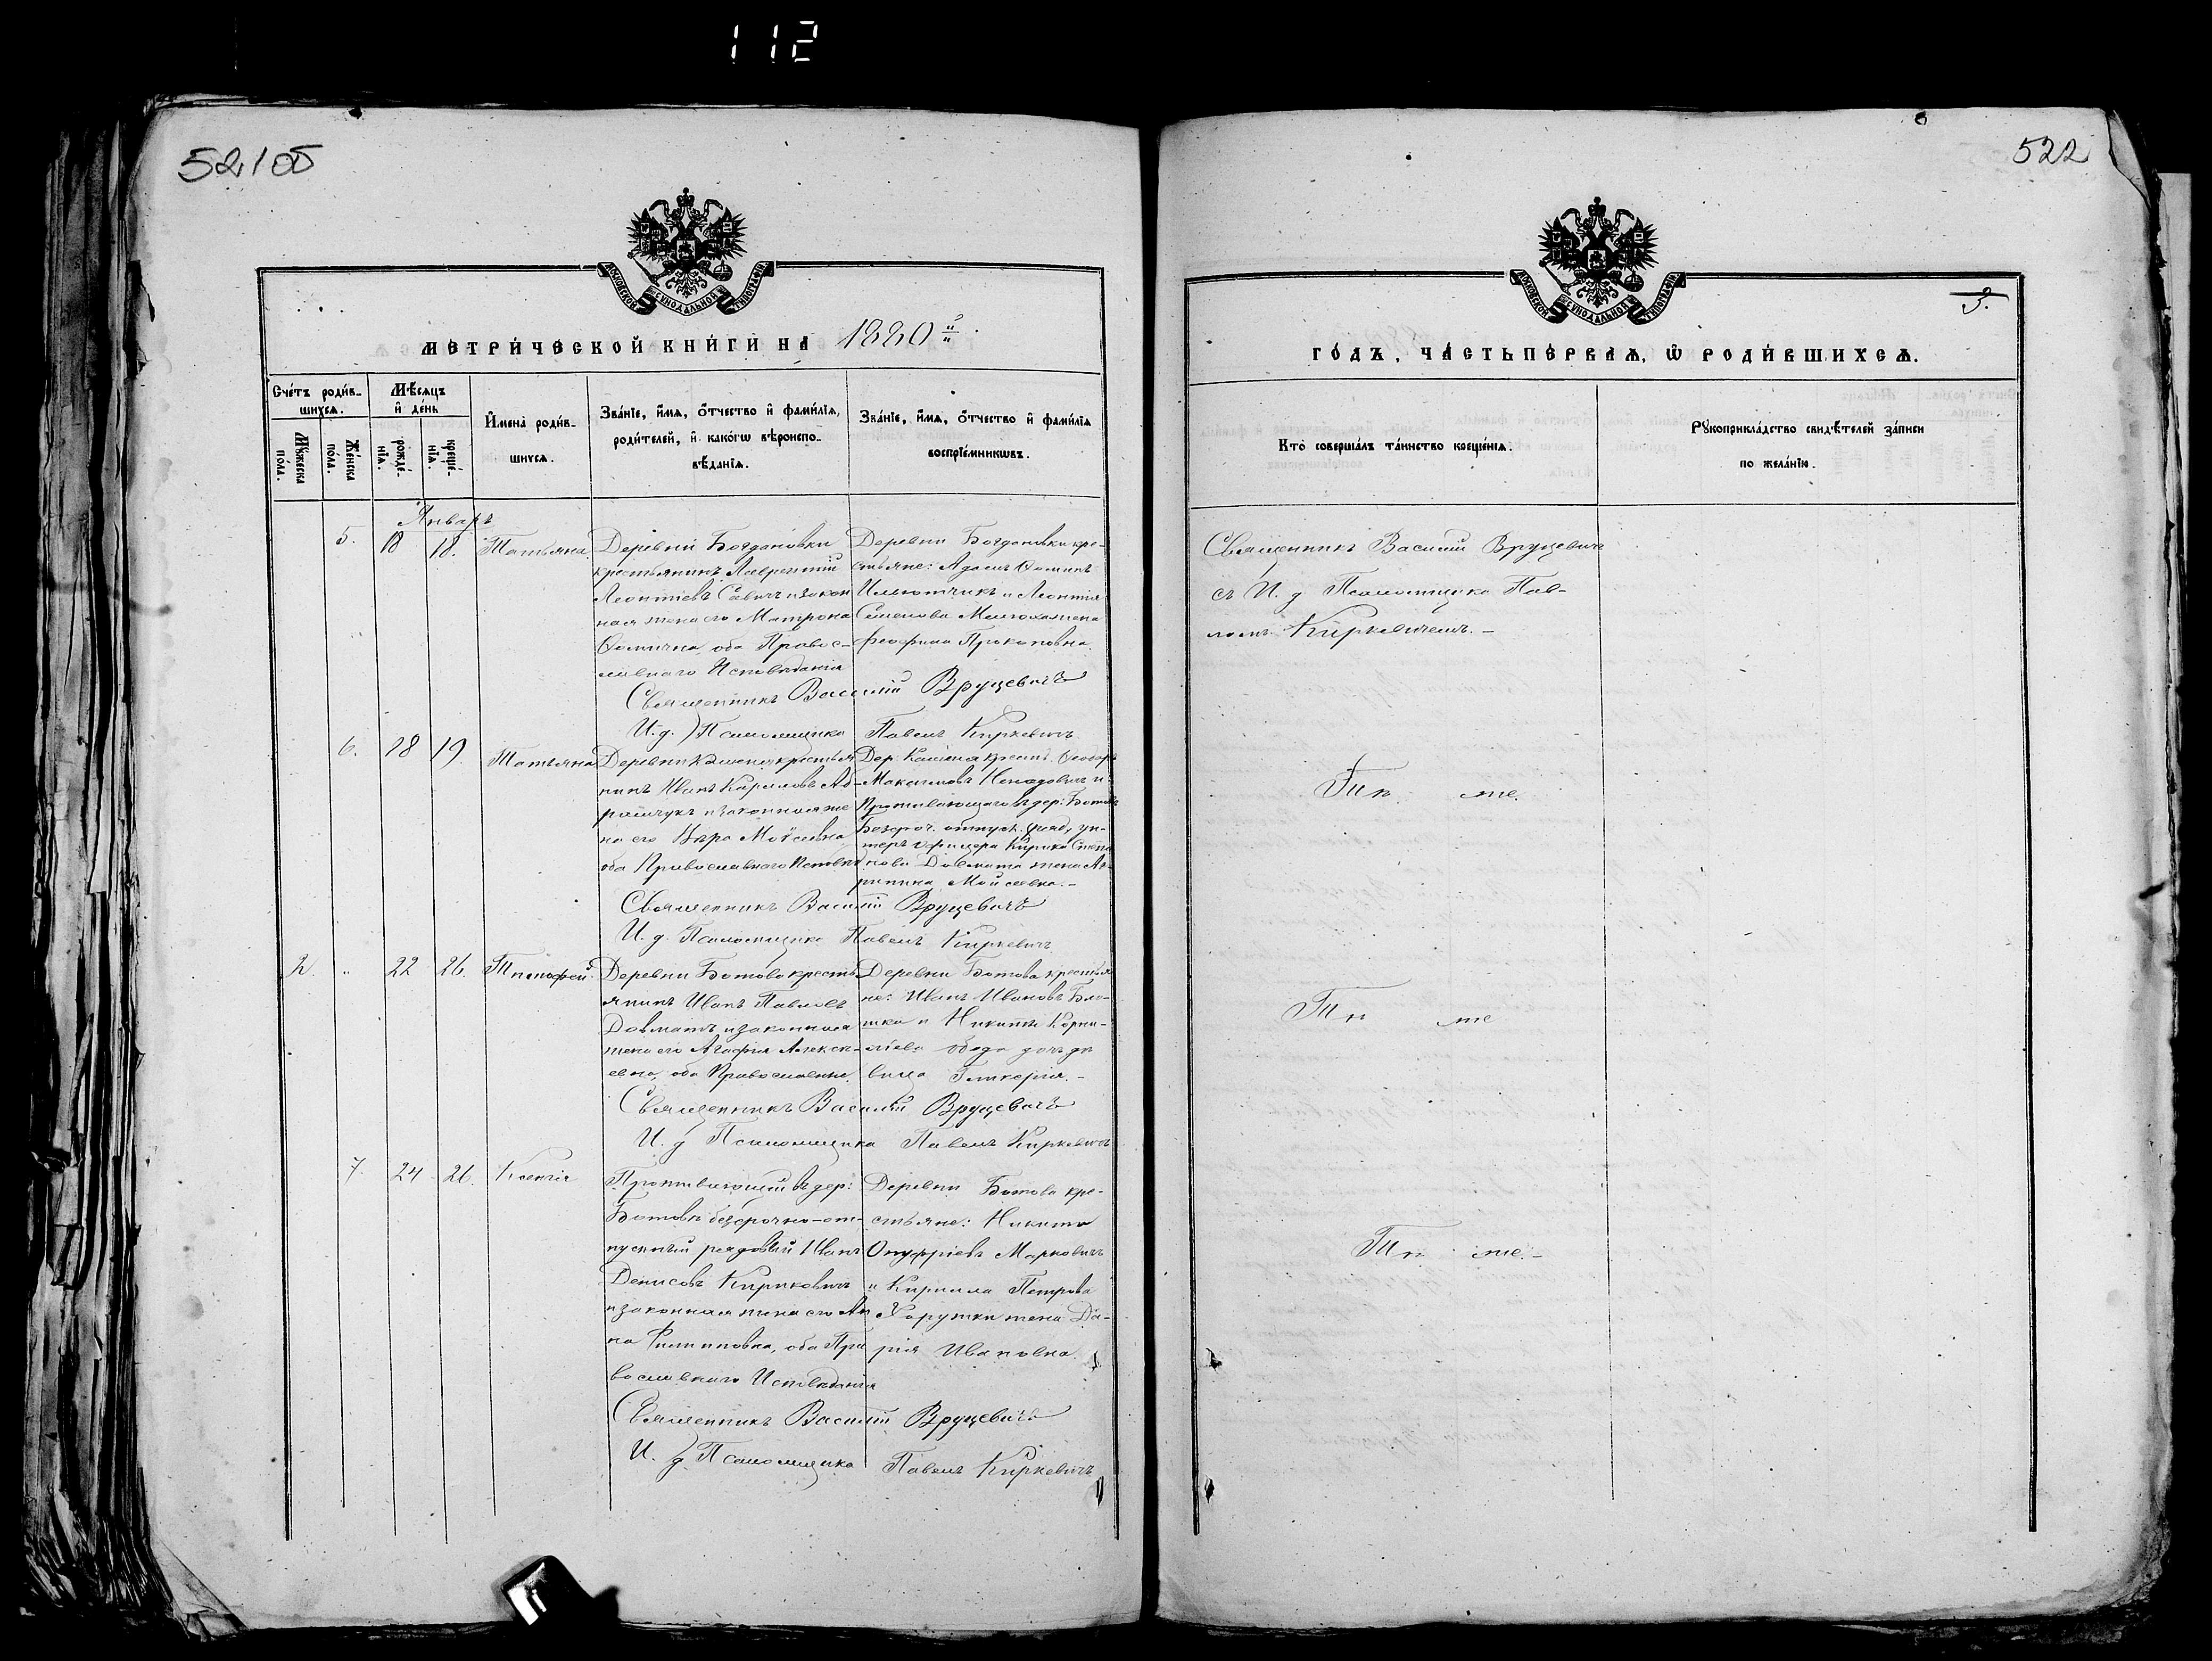 112
521 об
522
МОСКОВСКОЙ СѴНОДАЛЬНОЙ ТИПОГРАФІИ
МЕТРИ́ЧЕСКОЙ КНИ́ГИ НА 1880 й
Сче́тъ роди́в-
шихсѧ.
Мѣ́сѧцъ
и҆ де́нь
Мꙋ́жеска
по́ла.
Же́нска
по́ла.
рожде́-
нїѧ.
креще́-
нїѧ.
И҆мена̀ роди́в-
шихсѧ.
Зва́нїе, и҆́мѧ, ѻ҆́тчество и҆ фами́лїѧ,
роди́телей, и҆ како́гѡ вѣроиспо-
вѣ́данїѧ.
Зва́нїе, и҆́мѧ, ѻ҆́тчество и҆ фами́лїѧ
воспрїе́мникѡвъ.
Январь
5. 18 18. Татьяна
Деревни Богдановки
крестьянинъ Лаврентій
Леонтіевъ Савичъ и закон
ная жена его Матрона
Ѳомична, оба Правос-
лавнаго Исповѣданія
Деревни Богдановки кре-
стьяне: Адамъ Ѳоминъ
Ильютчикъ и Леонтія
Семенова жена
Феофима Прокоповна.
Священникъ Василій Вруцевичъ
И. д. Псаломщика Павелъ Киркевичъ
6. 18 19. Татьяна
Деревни Каменя крестья
нинъ Иванъ Кириловъ Аб-
рамчукъ и законная же
на его Вѣра Моѵсеевна
оба Православнаго Исповѣд
Дер. Каменя крест. Ѳеодоръ
Максимовъ Ненадовичъ и
Проживающаго въ дер: Ботовѣ
Безсроч. отпуск. ун-
теръ офицера Кирика Степа
нова Довмата жена Аг-
рипина Моисеевна.-
Священникъ Василій Вруцевичъ
И. д. Псаломщика Павелъ Киркевичъ
2. " 22 26. Тимофей
Деревни Ботова кресть
янинъ Иванъ Павловъ
Довматъ и законная
жена его Агафія Алексѣ-
евна, оба Православные.
Деревни Ботова крестья
не: Иванъ Ивановъ Бло-
шка и Никиты Корни-
ліева дочь дѣ
вица Гликерія.-
Священникъ Василій Вруцевичъ
И. д Псаломщика Павелъ Киркевичъ
7. 24 26. Ксенія
Проживающій въ дер:
Ботовѣ безсрочно-от-
пускной рядовый Иванъ
Денисовъ Кириковичъ
и законная жена его Ан
на Филиповна, оба Пра
вославнаго Исповѣданія
Деревни Ботова кре-
стьяне: Никита
Онуфріевъ Марковичъ
и Кирилла Петрова
Хоружи жена Да-
рія Ивановна.
Священникъ Василій Вруцевичъ
И. д. Псаломщика Павелъ Киркевичъ
МОСКОВСКОЙ СѴНОДАЛЬНОЙ ТИПОГРАФІИ
3.
ГО́ДЪ, ЧА́СТЬ ПЕ́РВАѦ, Ѽ РОДИ́ВШИХСѦ.
Кто̀ соверша́лъ та́инство креще́нїѧ.
Рꙋкоприкла́дство свидѣ́телей за́писи
по жела́нїю.
Священникъ Василій Вруцевичъ
съ И. д Псаломщика Пав-
ломъ Киркевичемъ.-
Тѣ же.
Тѣ же
Тѣ же.-